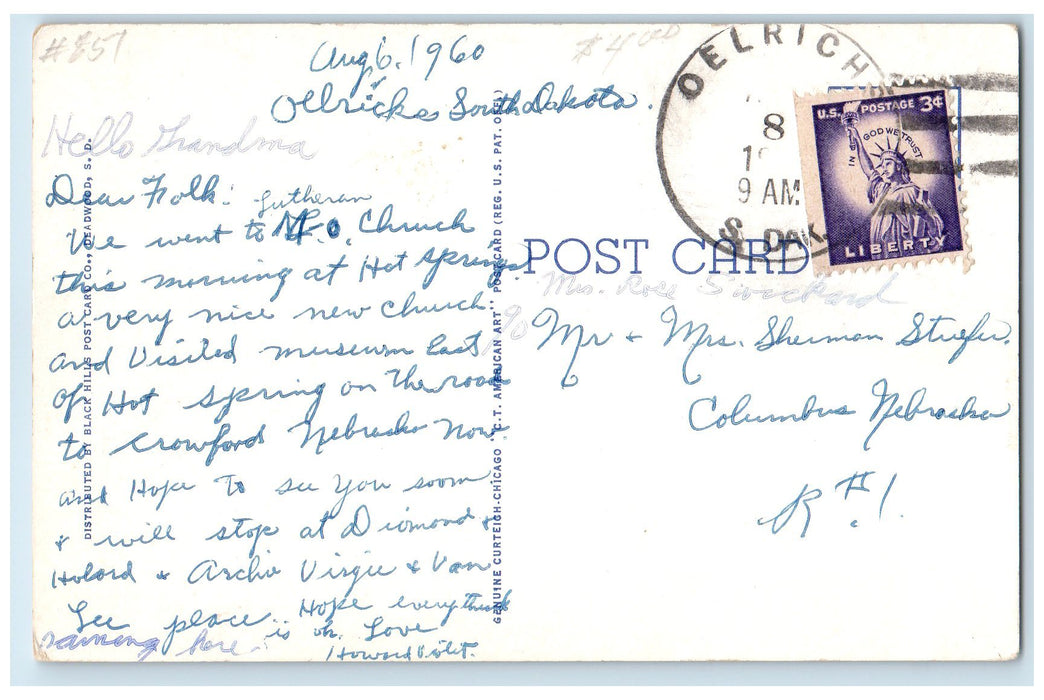 #851
$4.00
Aug 6. 1960
Olricks South Dakota.
Hello Grandma
Dear Folk:
Lutheran
We went to M.O. Chruch
this morning at Hot Springs
a very nice new church
and Visited museum East
of Hot Spring on the road
to Crowford Nebraska now.
and Hope to see you soon
& will stop at Diomond &
Holard & Archie Virgie & Van
Lee place. Hope everything
is oh. Love
Howard Violet.
raining here
DISTRIBUTED BY BLACK HILLS POST CARD CO., DEADWOOD, S. D.
GENUINE CURTEICH-CHICAGO "C.T. AMERICAN ART" POST CARD (REG. U. S. PAT. OFF.)
OELRICH
8
9 AM
S. DAK.
U.S. POSTAGE 3¢
IN GOD WE TRUST
LIBERTY
POST CARD
Mrs. Rose Swickard
% Mr & Mrs. Sherman
Columbus Nebraska
R #1.